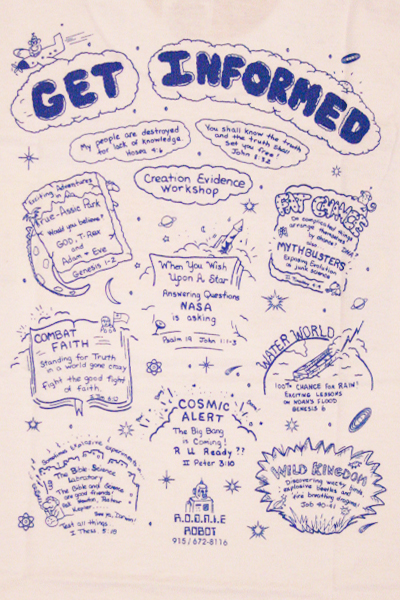 GET INFORMED
My people are destroyed
for lack of knowledge
Hosea 4:6
You shall know the truth
and the truth shall
set you free!
John 8:32
Creation Evidence
Workshop
Exciting Adventures
in a
True-Assic Park
Would you believe?
GOD, T-Rex
and
Adam & Eve
Genesis 1-2
When You Wish
Upon A Star
Answering Questions
NASA
is asking
Psalm 19 John 1:1-3
FAT CHANCE
Do complicated things
arrange themselves
by chance?
also
MYTHBUSTERS
Exposing Evolution
as junk science
COMBAT
FAITH
Standing for Truth
in a world gone crazy
Fight the good fight
of faith
WATER WORLD
100% CHANCE FOR RAIN!
EXCITING LESSONS
IN NOAH'S FLOOD
GENESIS 6
COSMIC
ALERT
The Big Bang
is Coming!
R U Ready??
II Peter 3:10
The Bible Science
Laboratory
The Bible and Science
are good friends!
Newton, Pasteur
Kepler
Test all things
I Thess. 5:18
WILD KINGDOM
Discovering wacky birds
explosive beetles and
fire breathing dragons!
Job 40-41
R.O.O.N.I.E
ROBOT
915/672-8116